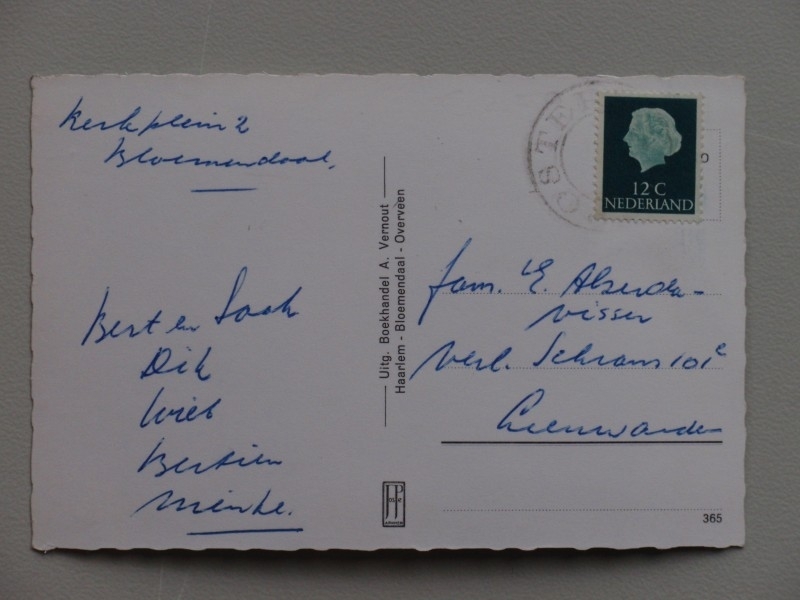 Kerkplein 2
Bloemendaal,
Bert en Saak
Dik
Wieb
Bertien
Mienke.
Uitg. Boekhandel A. Vernout
Haarlem - Bloemendaal - Overveen
12 C
NEDERLAND
fam. E. Alserda-
Visser
Verl. Schrans 101
Leeuwarden
365